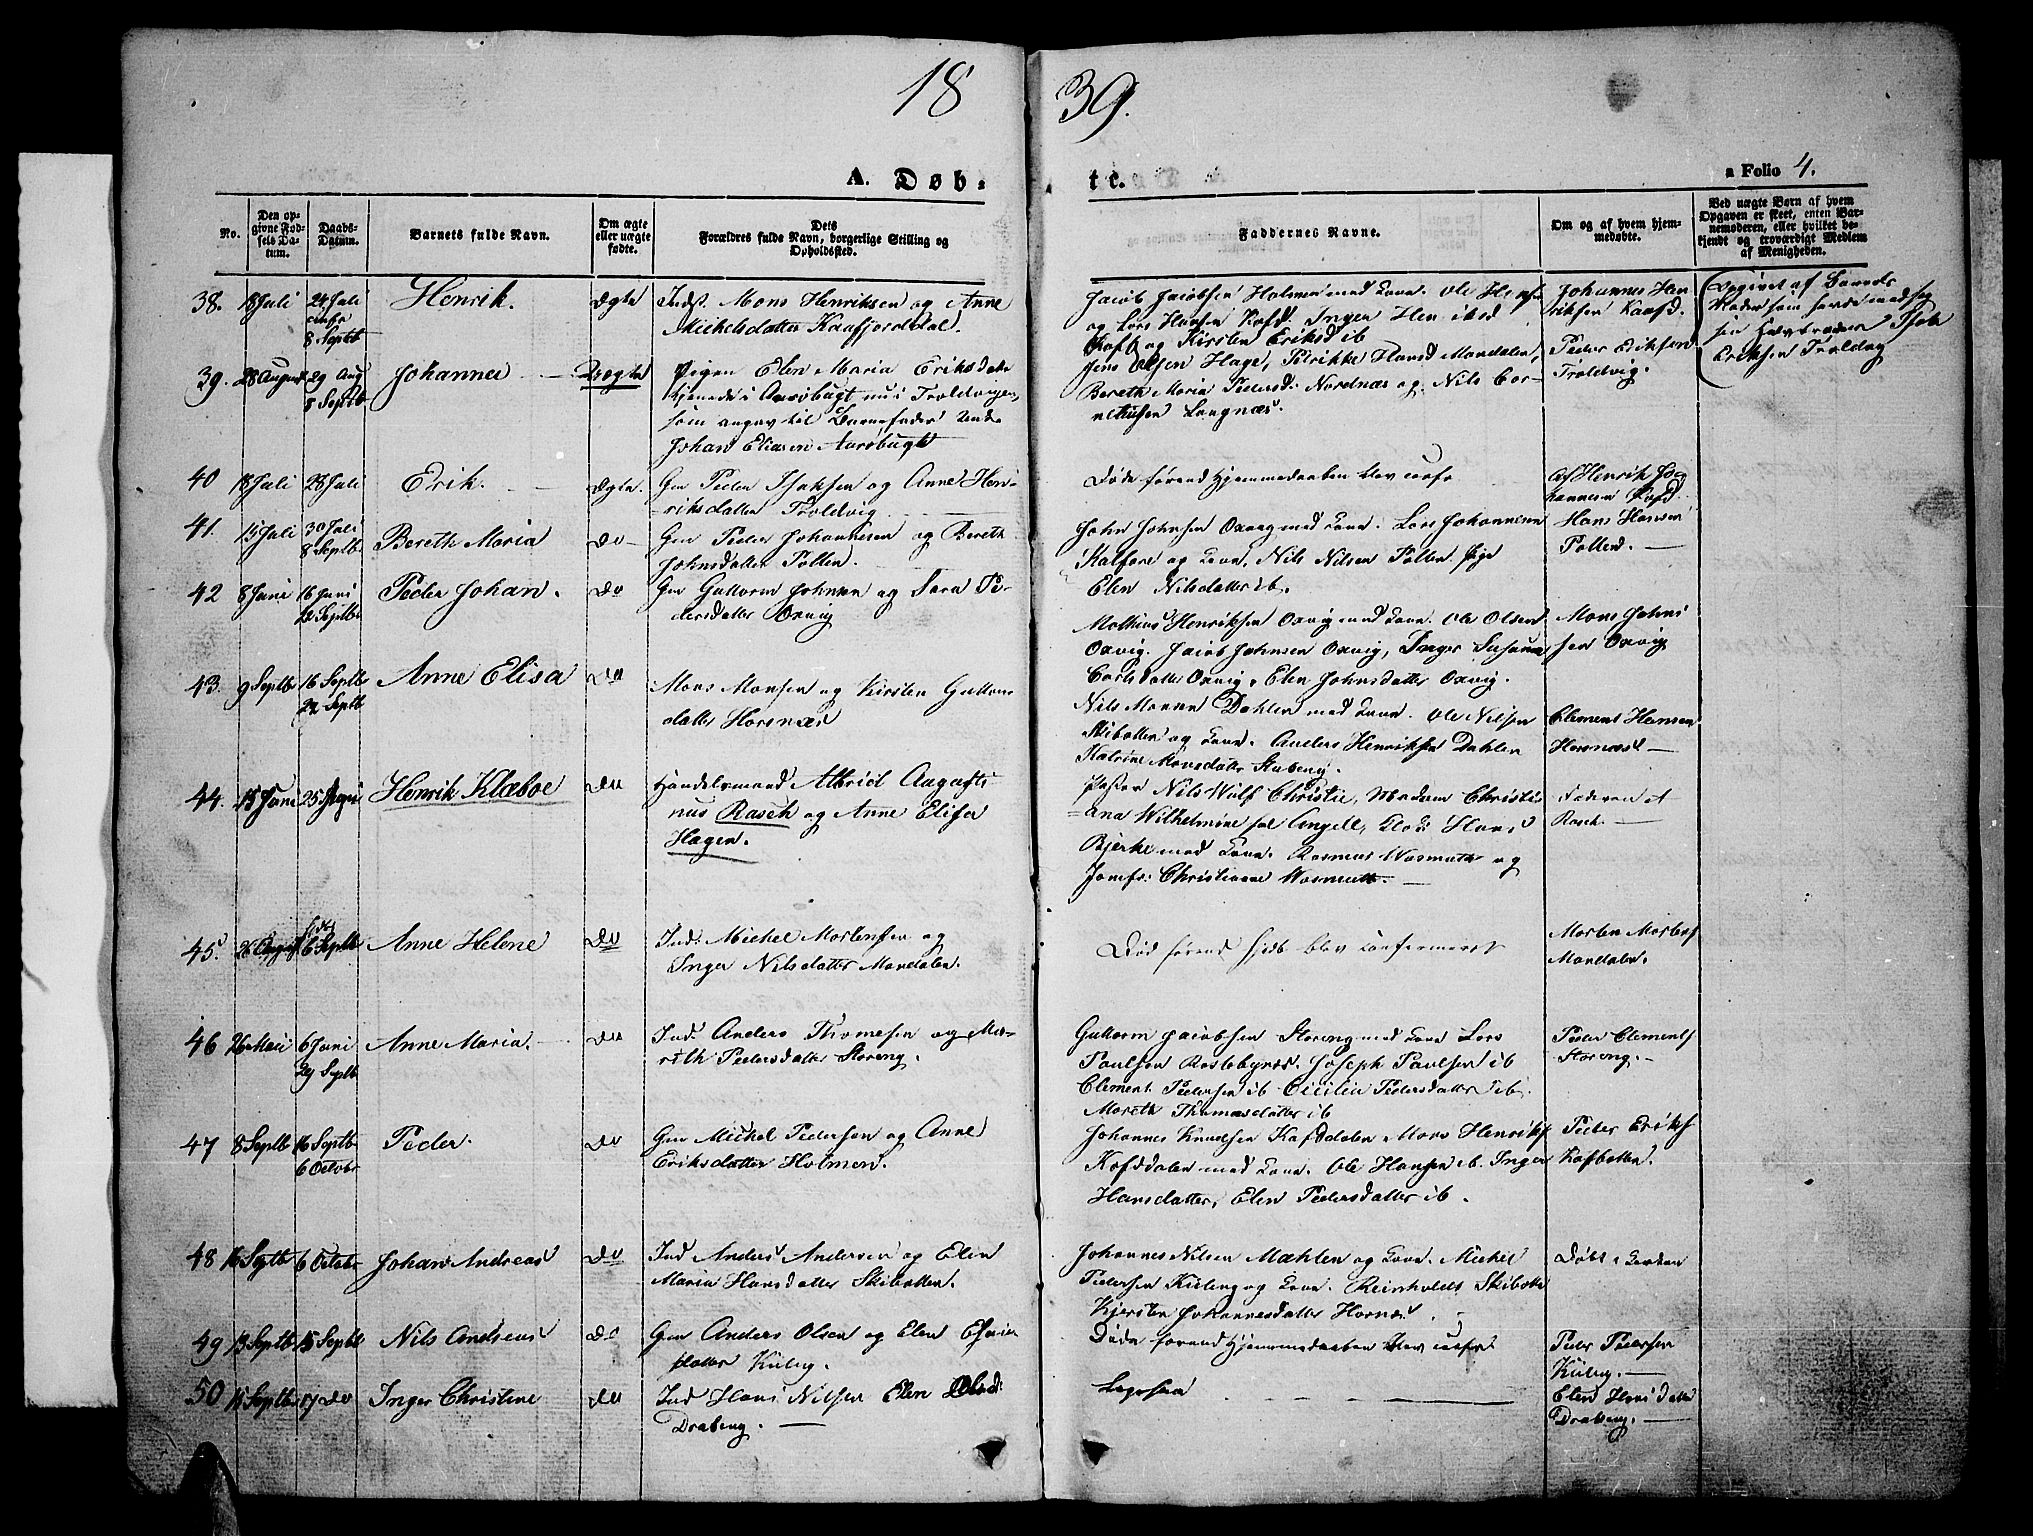 18 39.
A. Døb- te.
a Folio 4.
No.
Den opgivne Fødsels Datum.
Daabs-Datum.
Barnets fulde Navn.
Om ægte eller uægte fødte.
Dets Forældres fulde Navn, borgerlige Stilling og Opholdssted.
Faddernes Navne.
Om og af hvem hjemmedøbte.
Ved uægte Børn af hvem Opgaven er skeet, enten Barnemoderen, eller hvilket bekjendt og troværdigt Medlem af Menigheden.
38. 18 Juli 24 Juli 8 Septb Henrik. Ægte Inds. Mons Henriksen og Anne
Michelsdatter Kaafjorddal.
Jacob Jacobsen Holmen med Kone. Ole Hans
og Lars Hansen Kafd. Inger Henriksd
Kafb og Kirsten Eriksd ib
Johannes Hen
riksen Kaafd.
39. 28 August 29 Aug 8 Septb Johannes Uægte Pigen Elen Maria Eriksdatter
tjenende i Aarøbugt nu i Troldvigen,
som angav til Barnefader Unde
Johan Eliasen Aarøbugt
Jens Olsen Hage, Perikke Hansd Mandalen,
Bereth Maria Pedersd: Nordnæs og Nils Cor-
neliusen Langnæs.
Peder Eriksen
Troldvig.
Opgivet af Barnets
Moder som havde med sig
sin Halvbroder Isak
Eriksen Troldvig
40 18 Juli 28 Juli Erik. Ægte. Gm Peder Isaksen og Anne Hen-
riksdatter Troldvig
Døde førend Hjemmedaaben blev confr
af Henrik Jo
hannesen Kafd.
41. 15 Juli 30 Juli 8 Septb Bereth Maria Do Gm Peder Johannesen og Bereth
Johnsdatter Pollen.
John Johnsen Oxvig med Kone. Lars Johannesen
Kalfore og Kone, Nils Nilsen Pollen Pige
Elen Nilsdatter ib.
Hans Hansen
Pollen.
42 8 Juni 16 Juni 22 Septb Peder Johan. Do Gm Guttorm Johnsen og Sara Pe-
dersdatter Oxvig
Mathias Henriksen Oxvig med Kone. Ole Olsen
Oxvig. Jacob Johnsen Oxvig, Inger Susanna
Carlsdatter Oxvig, Elen Johnsdatter Oxvig.
Mons John
sen Oxvig
43. 9 Septb 16 Septb 22 Septb Anne Elisa Do Mons Monsen og Kirsten Guttorms
datter Horsnæs
Nils Monsen Dahlen med Kone. Ole Nilsen
Skibotten og Kone. Anders Henriksen Dahlen
Katrine Monsdatter Stubeng.
Clement Hansen
Horsnæs
44. 15 Juni 25 Juni Henrik Klæboe Do Handelsmand Albrict Augusti
nus Rasch og Anne Elisa
Hagen.
Pastor Nils Wulf Christie, Madam Christi
ana Wilhelmine født Angell, Klok Hans
Bjerke med Kone. Rasmus Wasmuth og
Jomfr: Christianne Wasmuth.
Faderen A
Rasch.
45. 26 August 6 Septb Anne Helene Do Ind. Michel Mortensen og
Inger Nilsdatter Mandalen.
Død førend Hjdb blev confirmeret
Morten Mortens
Mandalen.
46 26 Mai 6 Juni 29 Septb Anne Maria. Do Ind. Anders Thomesen og Ma-
reth Pedersdatter Storeng.
Guttorm Jacobsen Storeng med Kone Lars
Paulsen Rastebynæs. Joseph Paulsen ib
Clement Pedersen ib Cicilia Pedersdatter ib.
Mareth Thomasdatter ib
Peder Clements
Storeng.
47 8 Septb 16 Septb 6 October Peder. Do Gm Michel Pedersen og Anne
Eriksdatter Holmen.
Johannes Knudsen Kafddalen Mons Henriks
Kafddalen med Kone. Ole Hansen ib. Inger
Hansdatter, Elen Pedersdatter ib.
Peder Eriks
Kafbotten.
48 16 Septb 6 Octobr Johan Andreas Do Ind Anders Andersen og Elen
Maria Hansdatter Skibotten.
Johannes Nilsen Mæhlen og Kone. Michel
Pedersen Kileng og Kone. Reinholdt Skibotten
Kjersten Johannesdatter Hornæs
Døbt i Kirken
49 13 Septb 15 Septb Nils Andreas Do Gm Anders Olsen og Elen
datter Kileng.
Døde førend Hjemmedaaben blev confr
Peder Pedersen
Kileng.
50 15 Septb 17 Do Inger Christine Do Ind Hans Nilsen Elen Olsd:
Drabeng.
Ligesaa
Elen Hansdatter
Drabeng.